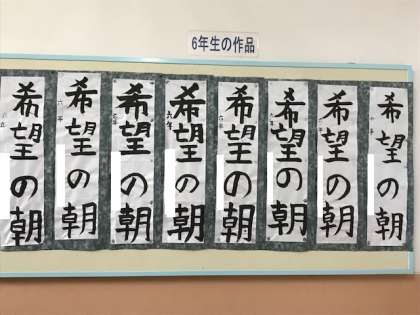 6年生の作品
希望の朝
希望の朝
希望の朝
希望の朝
希望の朝
希望の朝
希望の朝
希望の朝